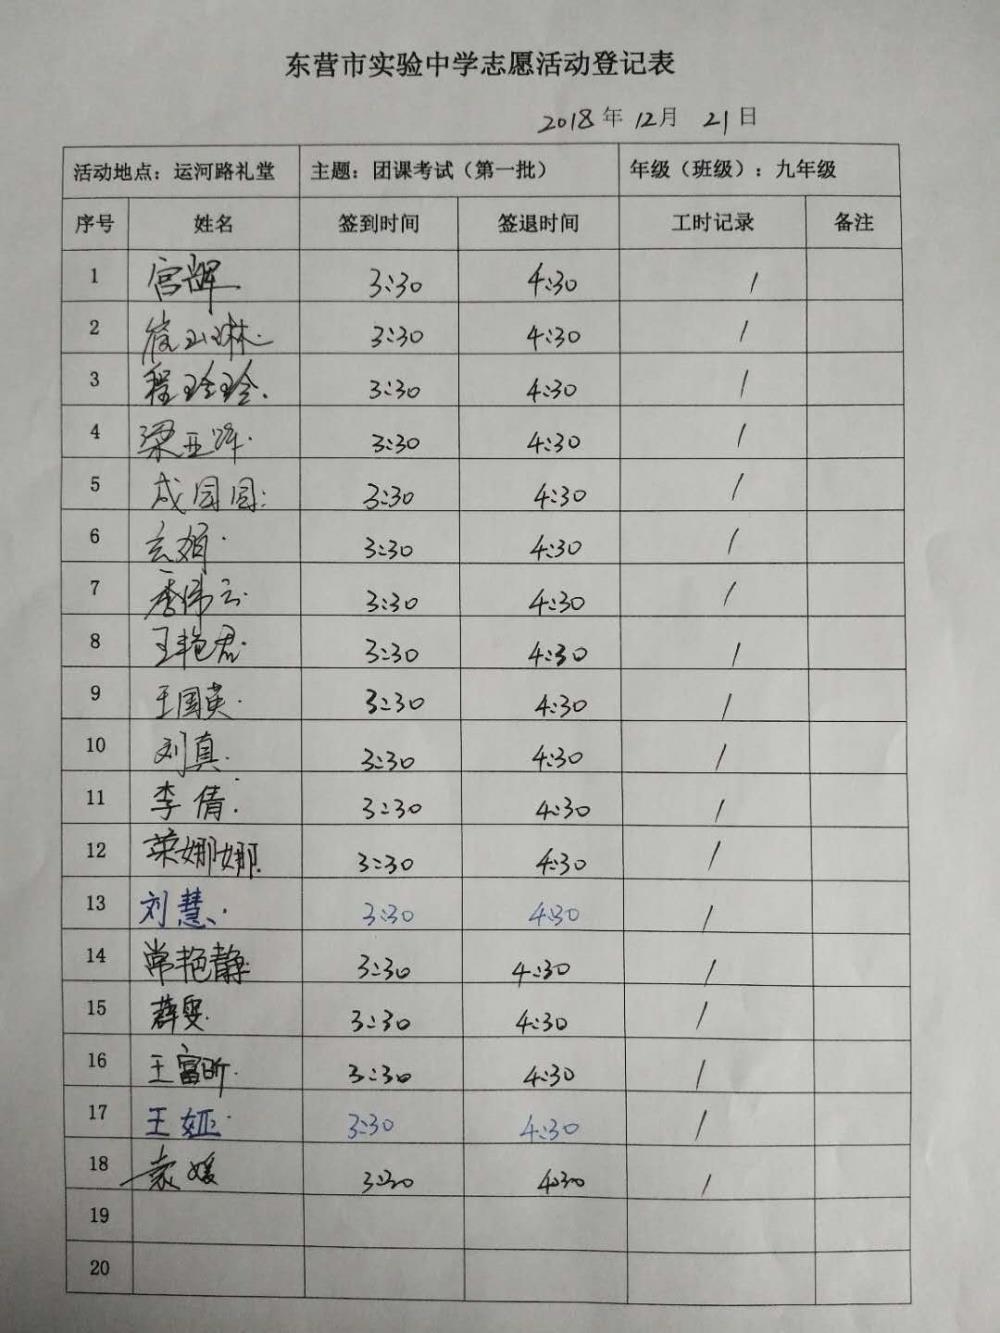 东营市实验中学志愿活动登记表
2018年12月21日
活动地点：运河路礼堂 主题：团课考试（第一批） 年级（班级）：九年级
序号 姓名 签到时间 签退时间 工时记录 备注
1 宫辉 3:30 4:30 1
2 3:30 4:30 1
3 程玲玲 3:30 4:30 1
4 梁亚峰 3:30 4:30 1
5 成园园 3:30 4:30 1
6 3:30 4:30 1
7 季伟云 3:30 4:30 1
8 王艳君 3:30 4:30 1
9 王国英 3:30 4:30 1
10 刘真 3:30 4:30 1
11 李倩 3:30 4:30 1
12 荣娜娜 3:30 4:30 1
13 刘慧 3:30 4:30 1
14 常艳静 3:30 4:30 1
15 薛雯 3:30 4:30 1
16 王富昕 3:30 4:30 1
17 王娅 3:30 4:30 1
18 袁媛 3:30 4:30 1
19
20